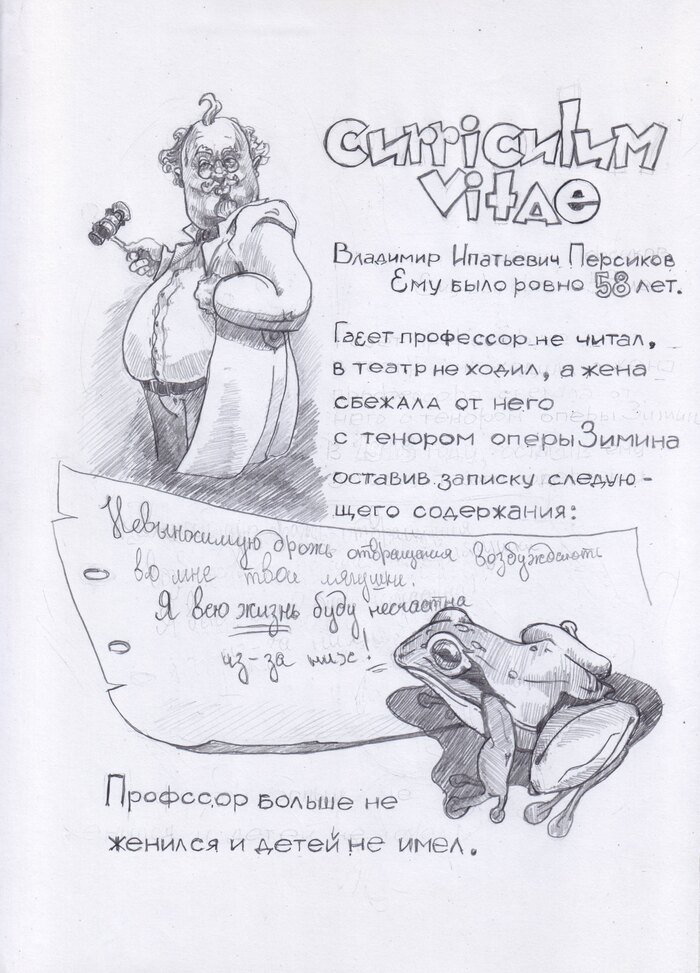 Curriculum
Vitae
Владимир Ипатьевич Персиков
Ему было ровно 58 лет.
Газет профессор не читал,
в театр не ходил, а жена
сбежала от него
с тенором оперы Зимина
оставив записку следую-
щего содержания:
Невыносимую дрожь отвращения возбуждают
во мне твои лягушки.
Я всю жизнь буду несчастна
из-за них!
Профссор больше не
женился и детей не имел.